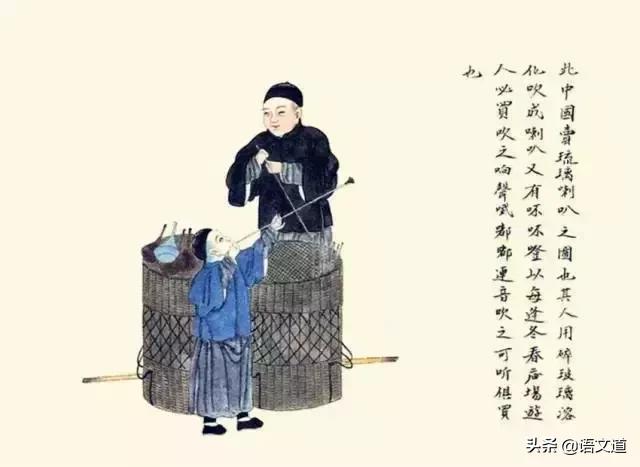 此中國賣琉璃喇叭之圖也其人用碎玻璃溶
化吹成喇叭又有呸呸噔以每逢冬春厰場遊
人必買吹之响聲哦嘟嘟連音吹之可听俱買
也
头条 @语文道